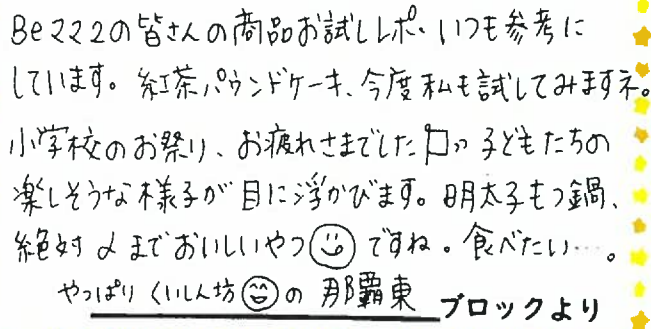 Beママ2の皆さんの商品お試しレポ、いつも参考に
しています。紅茶パウンドケーキ、今度私も試してみますネ。
小学校のお祭り、お疲れさまでした 子どもたちの
楽しそうな様子が目に浮かびます。明太子もつ鍋、
絶対〆までおいしいやつですね。食べたい…。
やっぱりくいしん坊の那覇東ブロックより